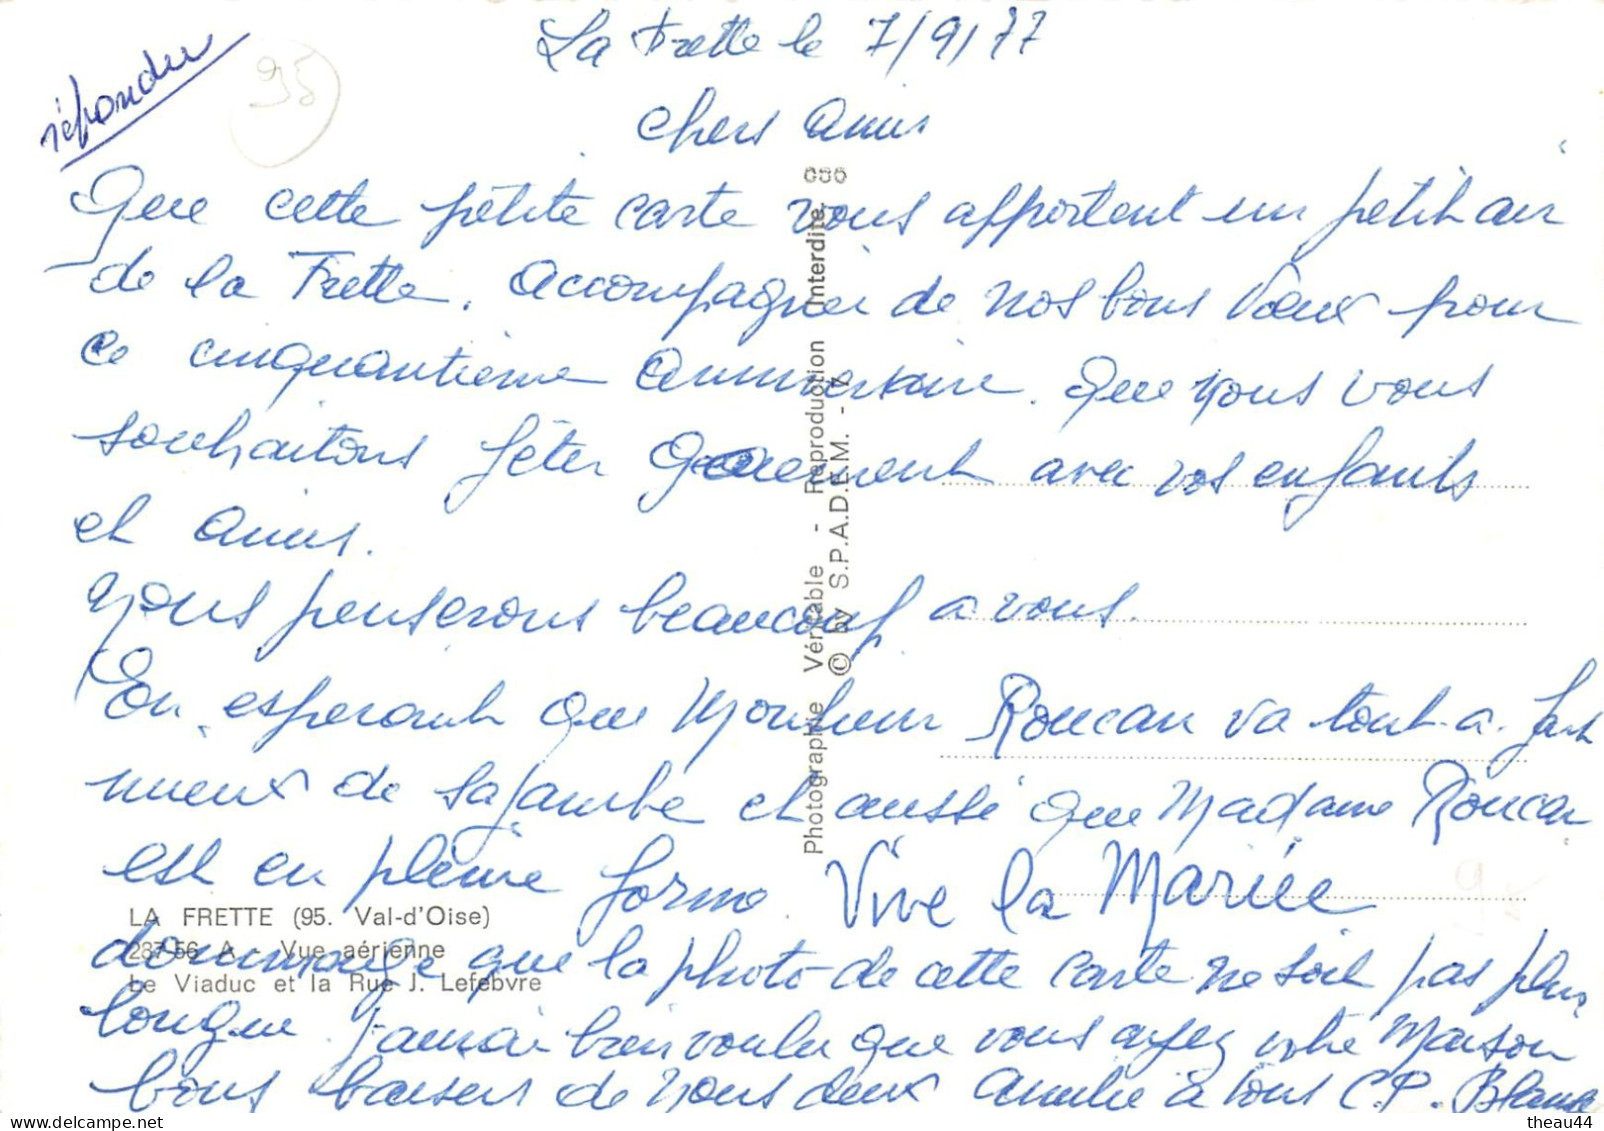 La Frette le 7/9/77
répondu
95
Chers Amis
Que cette petite carte vous apportent un petit air
de la Frette. Accompagner de nos bons vœux pour
ce cinquantième anniversaire. Que nous vous
souhaitons fêter gaiement avec vos enfants
et amis.
Nous penserons beaucoup a vous.
En esperant que Monsieur Roucan va tout a fait
mieux de sa jambe et aussi que Madame Roucan
est en pleine forme. Vive la Mariée
dommage que la photo de cette carte ne soit pas plus
longue. J'amai bien voulu que vous ayez votre Maison
bons baisers de nous deux amitié à tous C.P. Blanche
LA FRETTE (95. Val-d'Oise)
287-56 A - Vue aérienne
Le Viaduc et la Rue J. Lefebvre
Photographie Véritable - Reproduction Interdite
© by S.P.A.D.E.M. - 7
delcampe.net
theau44